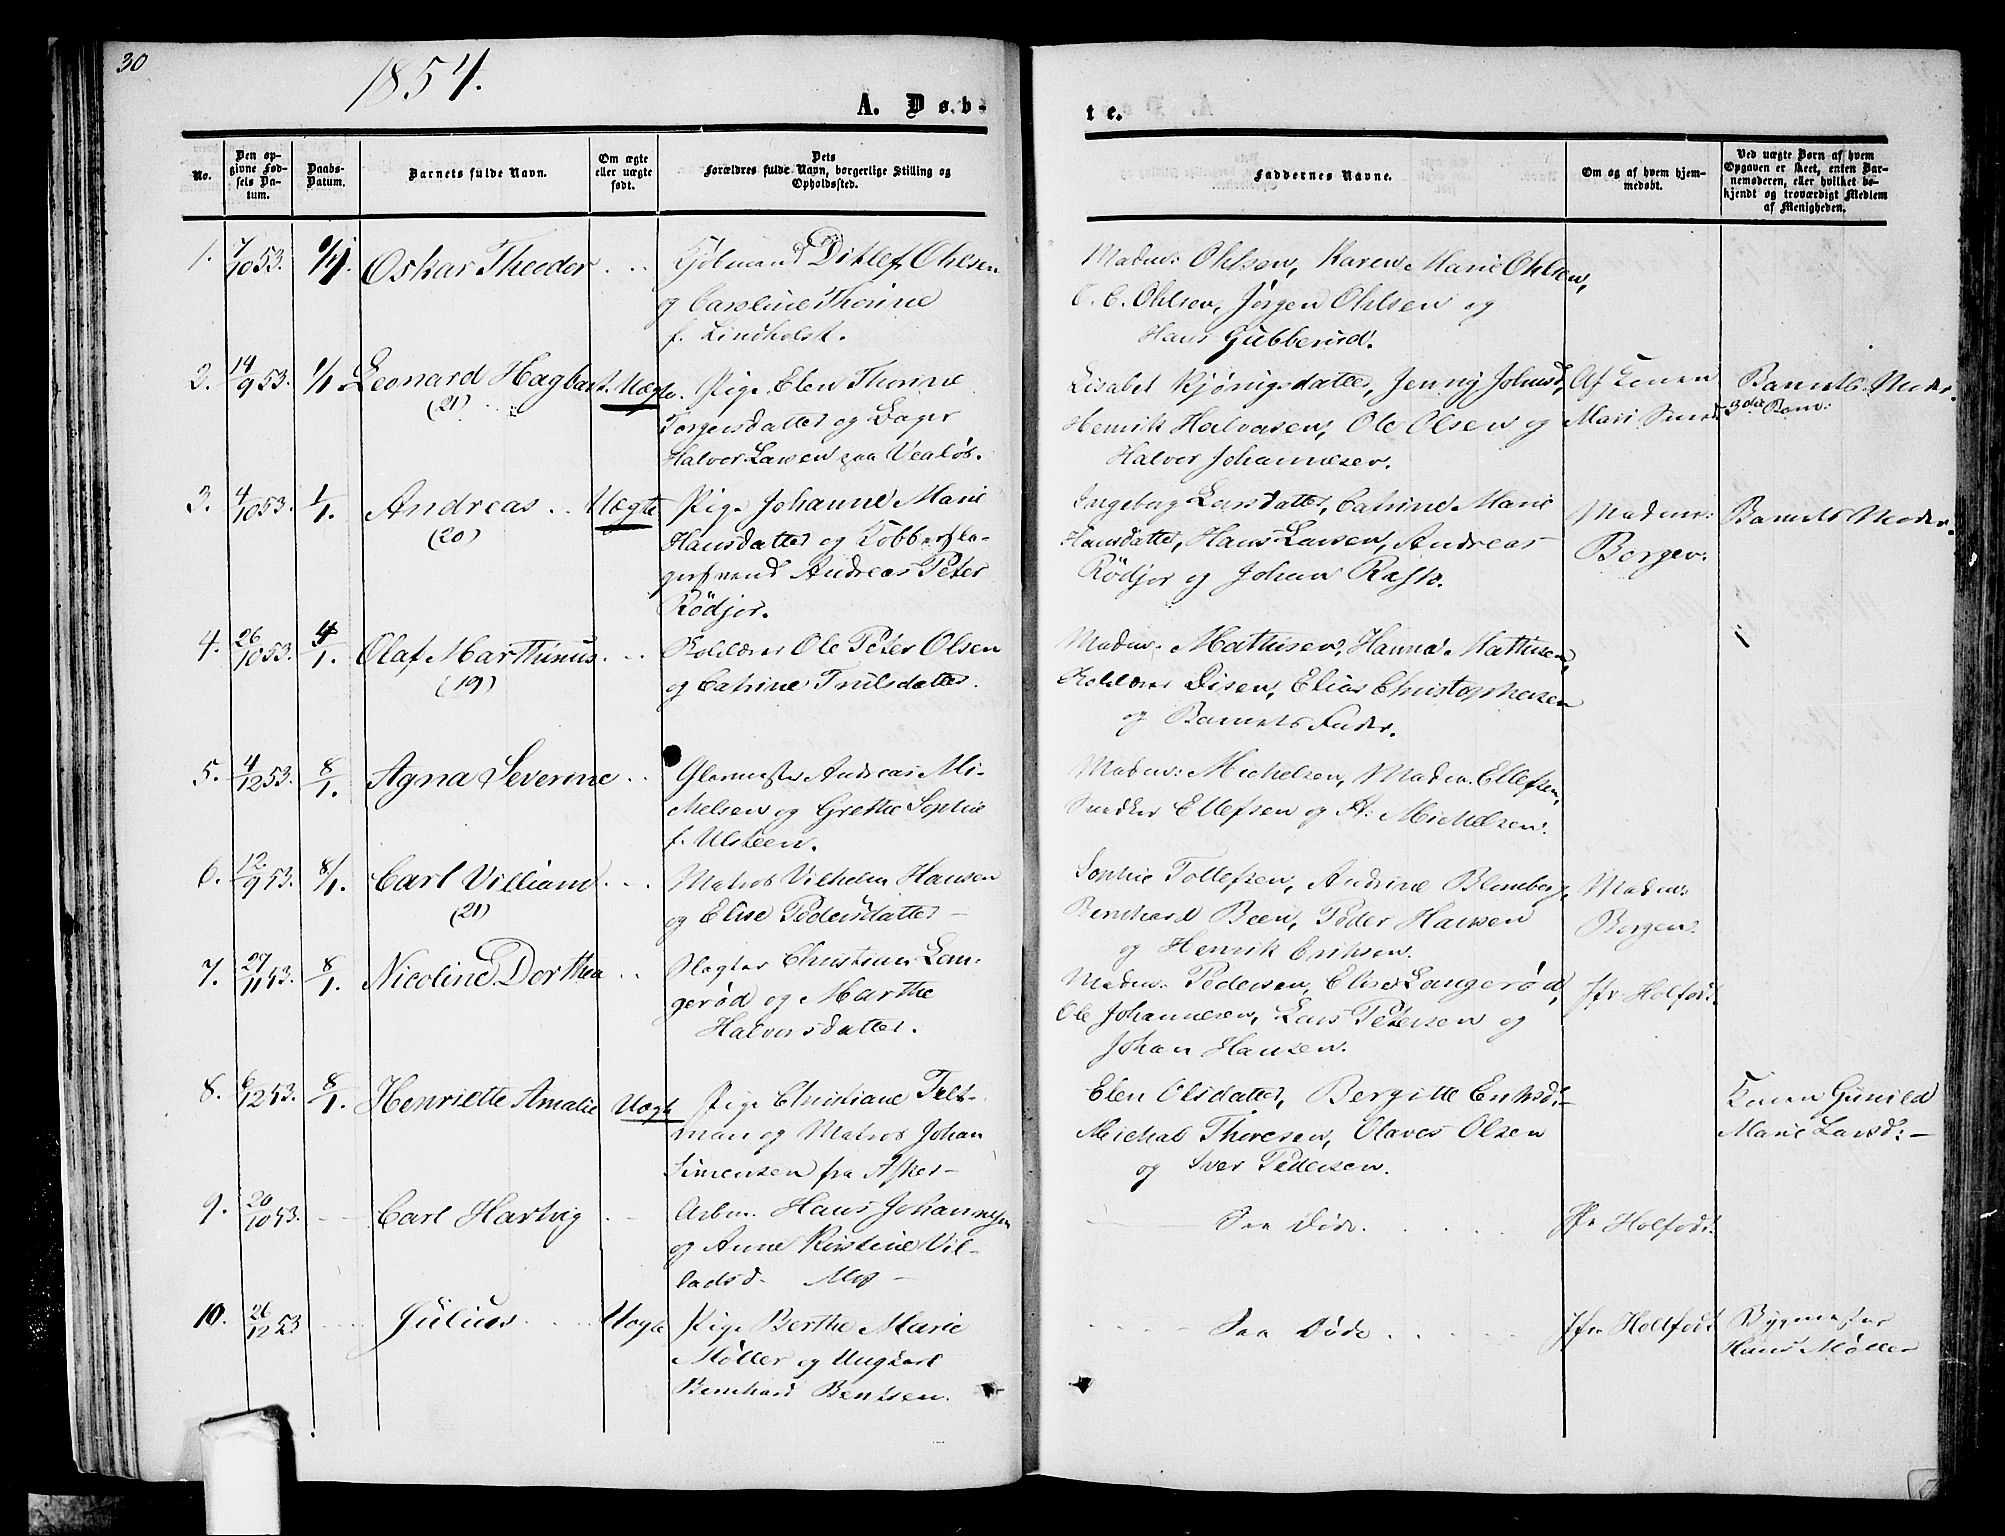 30
1854.
A. Døb-
te.
No.
Den op-
givne Fød-
sels Da-
tum.
Daabs-
Datum.
Barnets fulde Navn.
Om ægte
eller uægte
født.
Dets
Forældres fulde Navn, borgerlige Stilling og
Opholdssted.
Faddernes Navne.
Om og af hvem hjem-
medøbt.
Ved uægte Børn af hvem
Opgaven er skeet, enten Bar-
nemoderen, eller hvilket be-
kjendt og troværdigt Medlem
af Menigheden.
1. 7/10 53. 1/1. Oskar Theodor
Ditlef Ohlsen
og Caroline Thorine
f. Lindholst.
Madm: Ohlsen, Karen Marie Ohlsen,
C. C. Ohlsen, Jörgen Ohlsen og
Hans Gubberud.
2. 14/9 53. 1/1 Leonard Hagbart. Uægte.
(21)
Pige Elen Thorine
Torgersdatter og Bager
Halvor Larsen paa Vealös.
Lisabet Kjönigsdatter, Jenny Johnsd,
Henrik Halvorsen, Ole Olsen og
Halvor Johannesen.
Af
Mari
Barnets Moder.
3die Barn:
3. 4/10 53. 1/1. Andreas Uægte
(20)
Pige Johanne Marie
Hansdatter og Kobbersla-
gersvend Andreas Peter
Rödjor.
Ingeborg Larsdatter, Catrine Marie
Hansdatter, Hans Larsen, Andreas
Rödjor og Johan Rask.
Madm:
Borgen:
Barnets Moder.
4. 26/10 53. 4/1. Olaf Marthinus.
(19)
Ole Peter Olsen
og Catrine Trulsdatter.
Madm. Mathisen, Hanna Mathisen,
Disen, Elias Christophersen
og Barnets Fader.
5. 4/12 53. 8/1. Agna Severine
Glarmester Andreas Mi-
chelsen og Grethe Sophie
f. Ulsteen.
Madm: Michelsen, Madm. Ellefsen,
Snedker Ellefsen og A. Michelsen.
6. 12/9 53. 8/1. Carl Villiam
(21)
Matros Vilhelm Hansen
og Elise Pedersdatter -
Sophie Tollefsen, Andrine Blomberg,
Bernhard Been, Peder Hansen
og Henrik Eriksen.
Madm:
Borgen.
7. 27/11 53. 8/1. Nicoline Dorthea
Slagter Christian Lan-
gerød og Marthe
Halvorsdatter.
Madm. Pedersen, Elise Langerød,
Ole Johannesen, Lars Petersen og
Johan Hansen.
Jfr Holfodt.
8. 6/12 53. 8/1. Henriette Amalie Uægte
Pige Christiane Telt-
man og Matros Johan
Simensen fra Asker-
Elen Olsdatter, Bergitte Eriksd:-
Michal Thoresen, Olaves Olsen
og Iver Pedersen.
Karen Gunild
Marie Larsd: -
9. 20/10 53. Carl Hartvig
Arbm. Hans Johannesen
og Anne Kirstine Vil-
ladsd.
Saa Døde.
Jfr Holfodt.
10. 26/12 53 Julius Uægte
Pige Berthe Marie
Møller og Ungkarl
Bernhard Bentsen.
Saa Døde
Jfr Holtfodt
Bygmester
Hans Møller